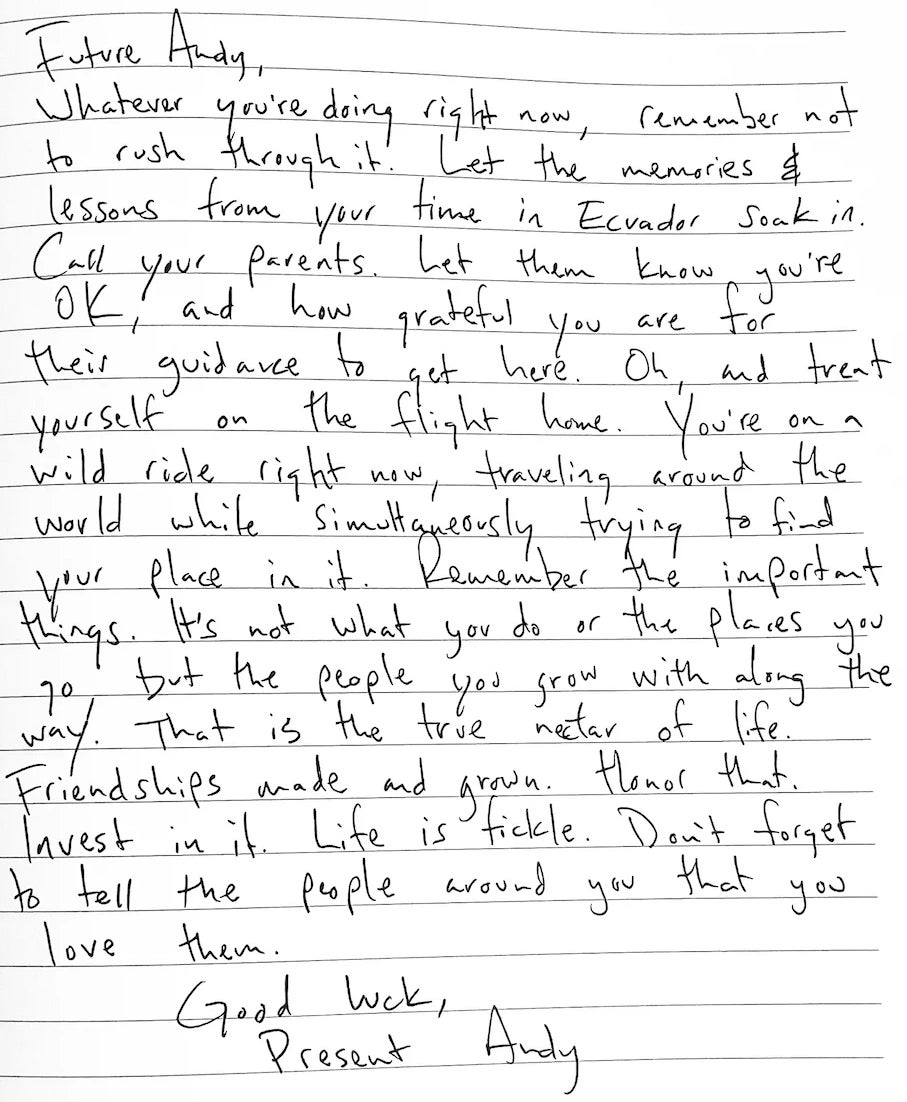 Future Andy,
Whatever you're doing right now, remember not
to rush through it. Let the memories &
lessons from your time in Ecuador soak in.
Call your parents. Let them know you're
OK, and how grateful you are for
their guidance to get here. Oh, and treat
yourself on the flight home. You're on a
wild ride right now, traveling around the
world while simultaneously trying to find
your place in it. Remember the important
things. It's not what you do or the places you
go, but the people you grow with along the
way. That is the true nectar of life.
Friendships made and grown. Honor that.
Invest in it. Life is fickle. Don't forget
to tell the people around you that you
love them.
Good luck,
Present Andy